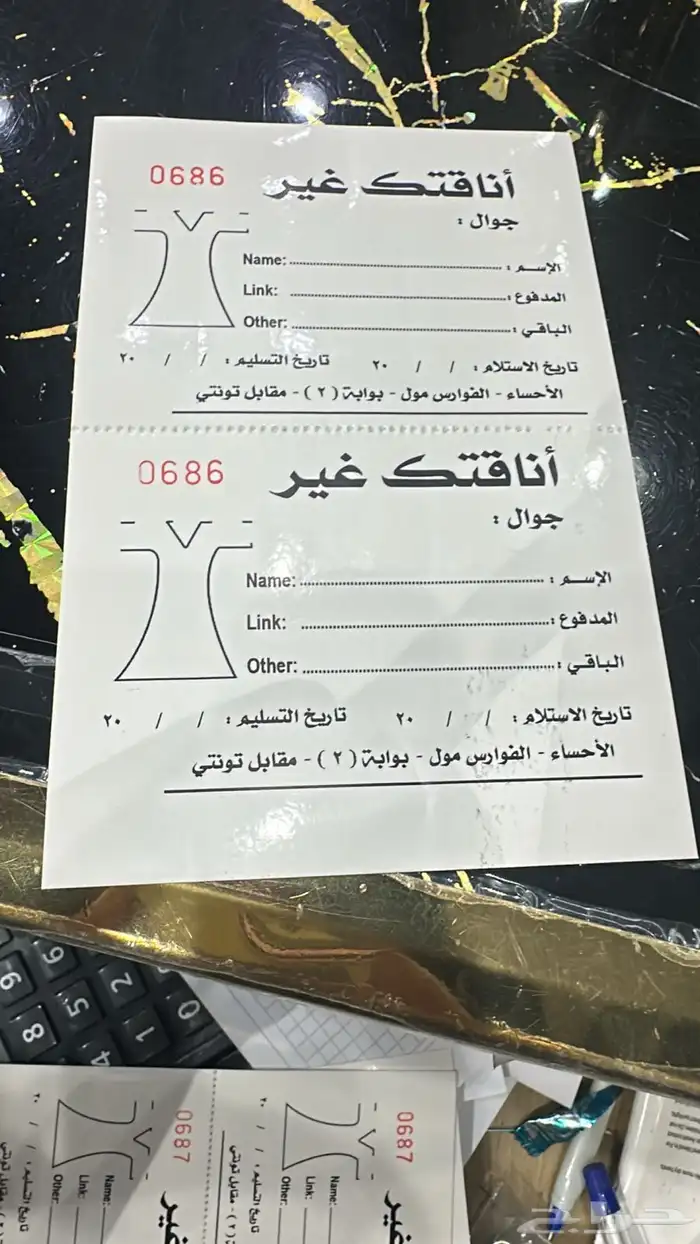 أناقتك غير 0686
جوال :
Name: الإسم :
Link: المدفوع :
Other: الباقي :
تاريخ الاستلام : / / ٢٠ تاريخ التسليم : / / ٢٠
الأحساء - الفوارس مول - بوابة ( ٢ ) - مقابل تونتي
أناقتك غير 0686
جوال :
Name: الإسم :
Link: المدفوع :
Other: الباقي :
تاريخ الاستلام : / / ٢٠ تاريخ التسليم : / / ٢٠
الأحساء - الفوارس مول - بوابة ( ٢ ) - مقابل تونتي
9 6
8 5 2
4 1 0
0687
غير
Name:
Link:
Other:
تاريخ التسليم : / / ٢٠
0687
غير
Name:
Link:
Other:
تاريخ التسليم : / / ٢٠
( ٢ ) - مقابل تونتي
حراج